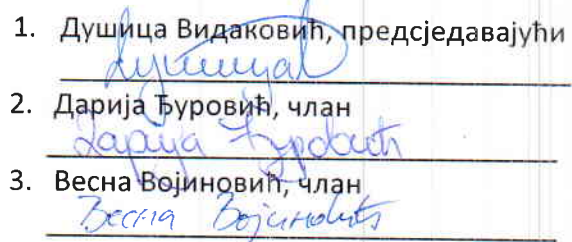 1. Душица Видаковић, предсједавајући
2. Дарија Ђуровић, члан
Дарија Ђуровић
3. Весна Војиновић, члан
Весна Војиновић